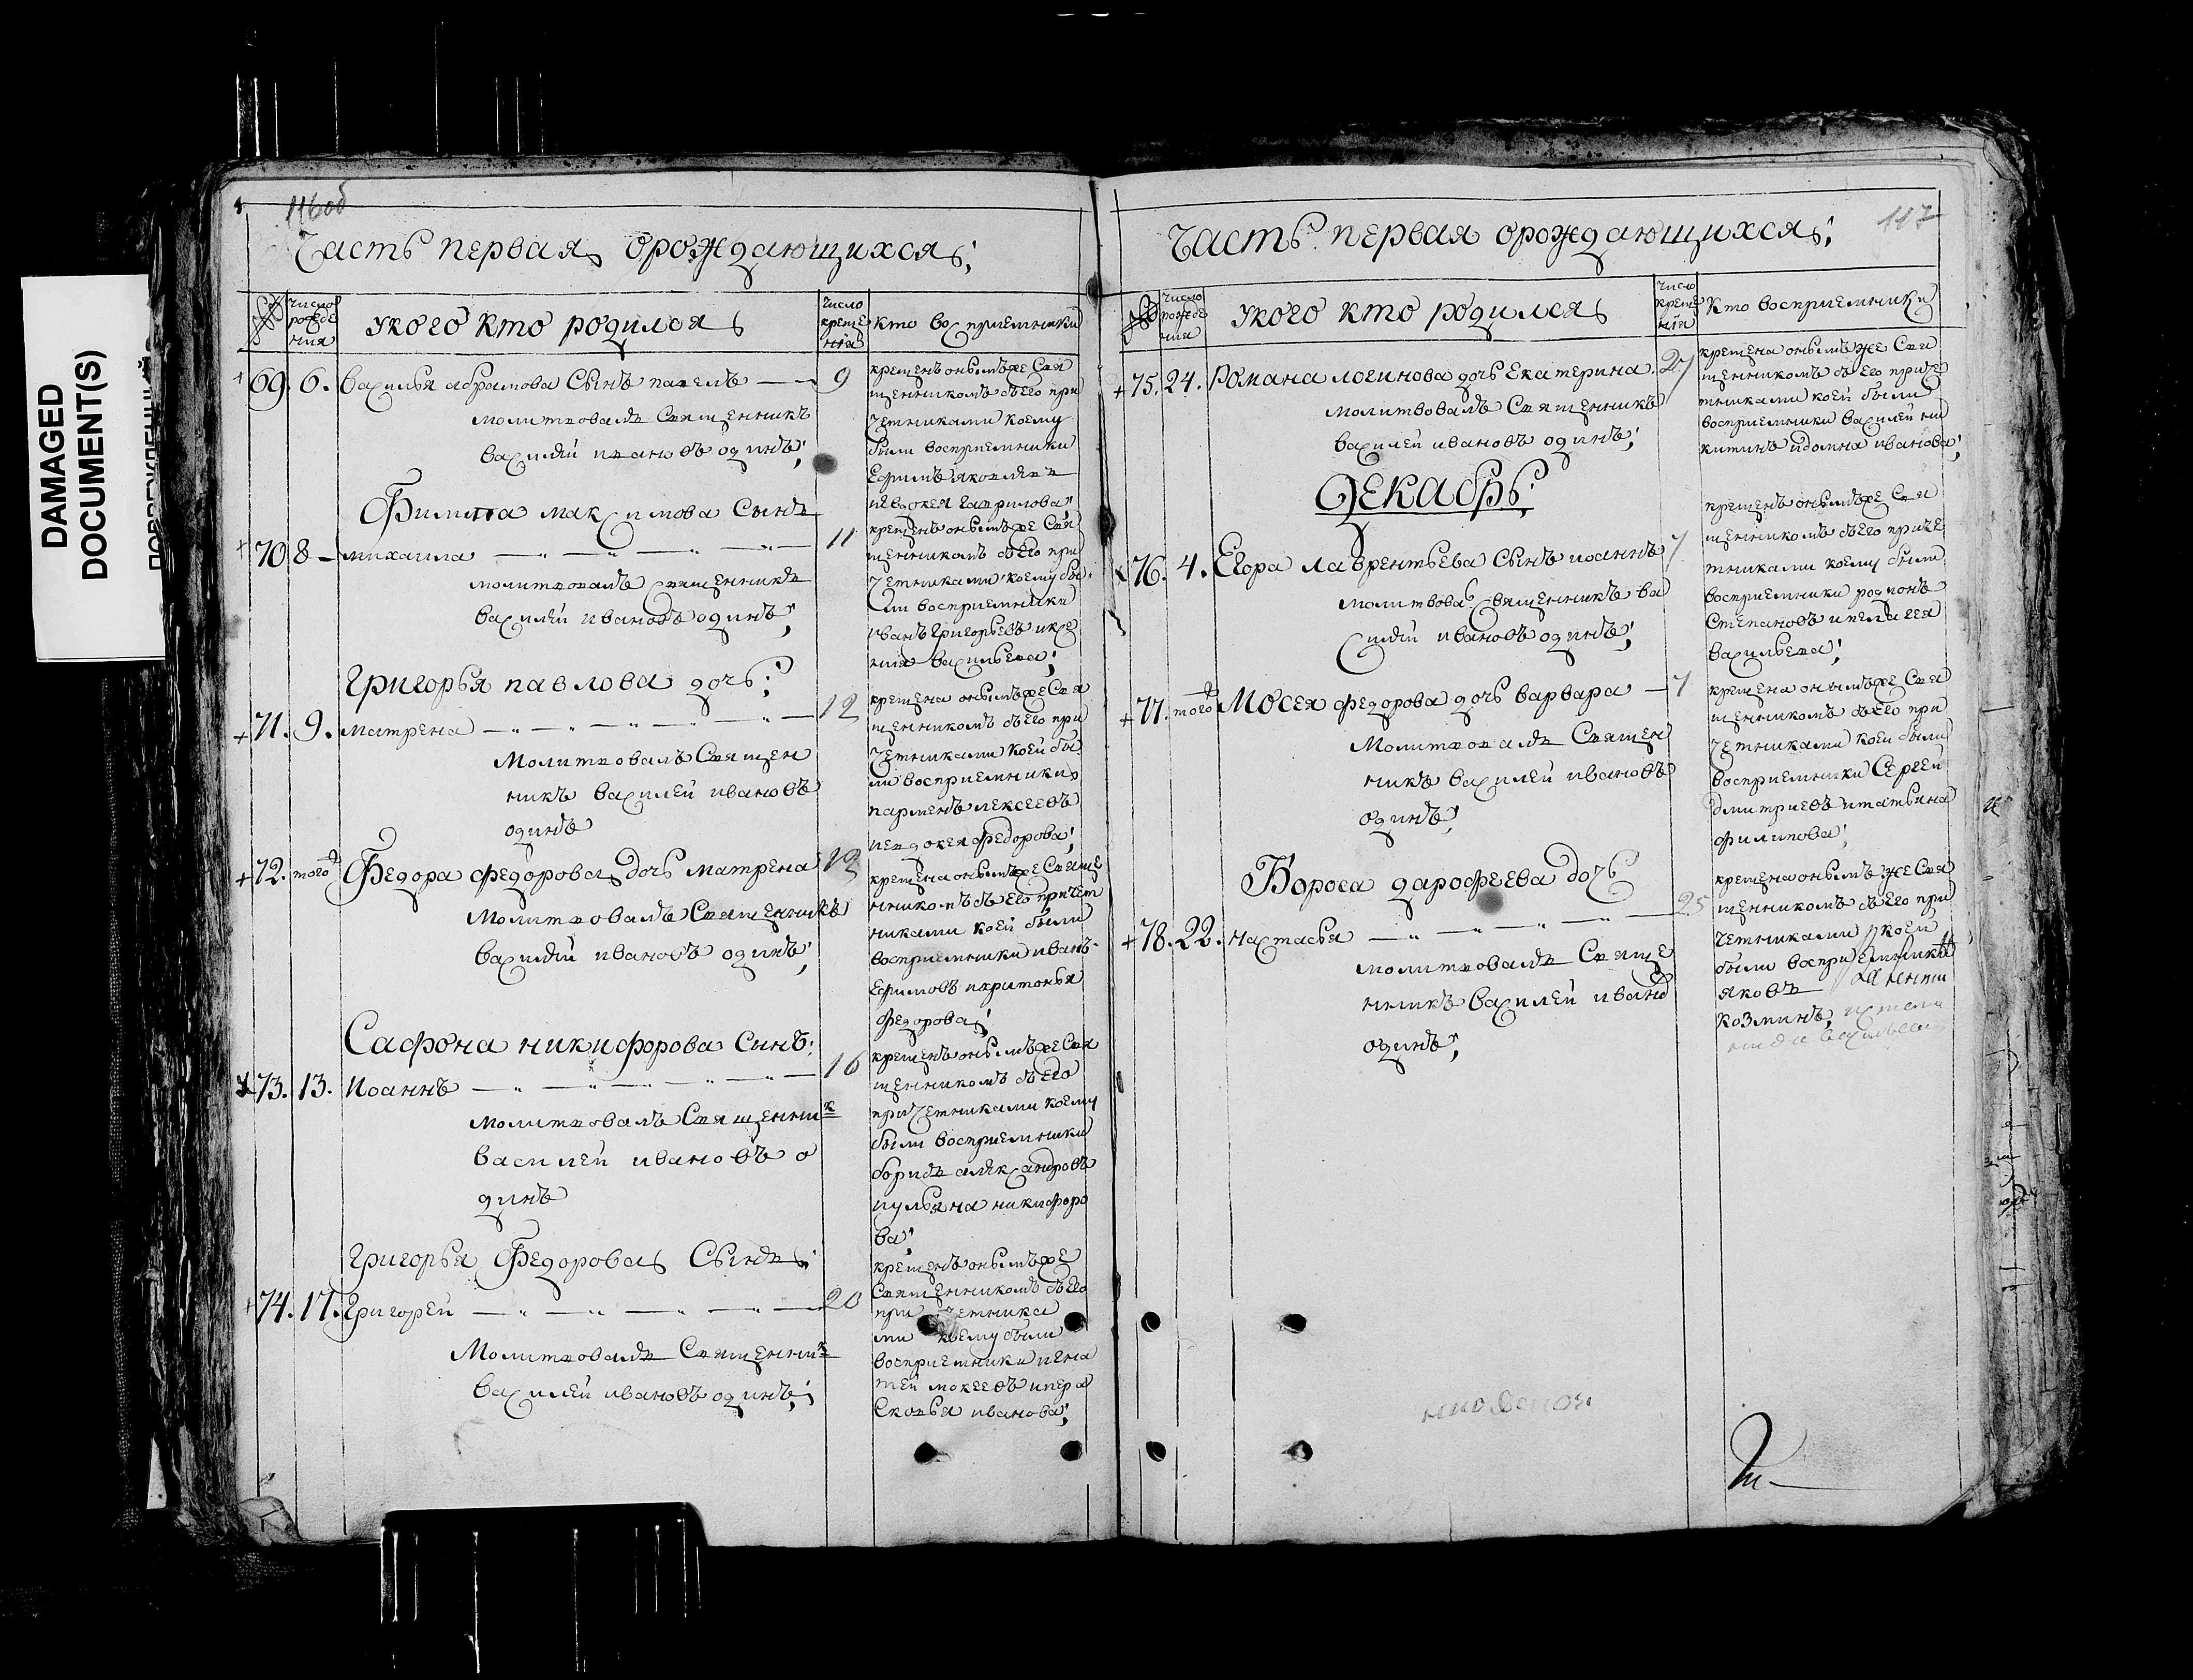 DAMAGED
DOCUMENT(S)
116об
Часть первая орождающихся;
№
число
рожде
ния
укого кто родился
число
креще
нія
кто восприемники
69. 6. Василья абрамова Сынъ павелъ 9
молитвовалъ Священникъ
василей ивановъ одинъ;
крещенъ онымъже Свя
щенникомъ съего при
четниками коему
были восприемники
Ефимъ яковлевъ
иевдокея гаврилова;
Филипа максимова Сынъ
70 8 михаила 11
молитвовалъ священникъ
василей ивановъ одинъ;
крещенъ онымъже Свя
щенникомъ съего при
четниками коему бы
ли восприемники
иванъ григорьевъ иксе
ния васильева;
Григорья павлова дочь;
71. 9. матрена 12
Молитвовалъ Священ
никъ василей ивановъ
одинъ
крещена онымъже Свя
щенникомъ съего при
четниками коей бы
ли восприемники
парменъ алексеевъ
иевдокея федорова;
72. того Федора федорова дочь матрена 13
Молитвовалъ Священникъ
василей ивановъ одинъ;
крещена онымъже Свяще
нникомъ съего причет
никами коей были
восприемники иванъ
Ефимовъ ихаритонья
федорова;
Сафона никифорова Синъ;
73. 13. Иоаннъ 16
Молитвовалъ Священник
василей ивановъ о
динъ
крещенъ онымъже Свя
щенникомъ съего
причетниками коему
были восприемники
борисъ александровъ
иульяна никифоро
ва;
Григорья Федорова Сынъ;
74. 17. Григорей 20
Молитвовалъ Священник
василей ивановъ одинъ;
крещенъ онымъже
Священникомъ съего
при четника
ми коему были
восприемники игна
тей мокеевъ ипара
сковья иванова;
117
Часть первая орождающихся;
№
число
рожде
ния
укого кто родился
число
креще
нія
Кто восприемники
75. 24. Романа логинова дочь Екатерина 27
молитвовалъ Священникъ
василей ивановъ одинъ;
крещена онымъ же Свя
щенникомъ съего приче
тниками коей были
восприемники василей ни
китинъ идомна иванова;
Декабрь;
76. 4. Егора лаврентьева Сынъ иоаннъ 7
молитвова священникъ ва
силей ивановъ одинъ;
крещенъ онымъже Свя
щенникомъ съего приче
тниками коему были
восприемники родионъ
Степановъ ипелагея
васильева;
77. того Мосея федорова дочь варвара 7
Молитвовалъ Священ
никъ василей ивановъ
одинъ;
крещена онымъже Свя
щенникомъ съего при
четниками коей были
восприемники Сергей
дмитриевъ итатьяна
филипова;
Бориса дарофеева дочь
78. 22. настасья 25
молитвовалъ Свяще
нникъ василей иванов
одинъ;
крещена онымъ же Свя
щенникомъ съего при
четниками коей
были восприемники
яковъ
козминъ,
васильева